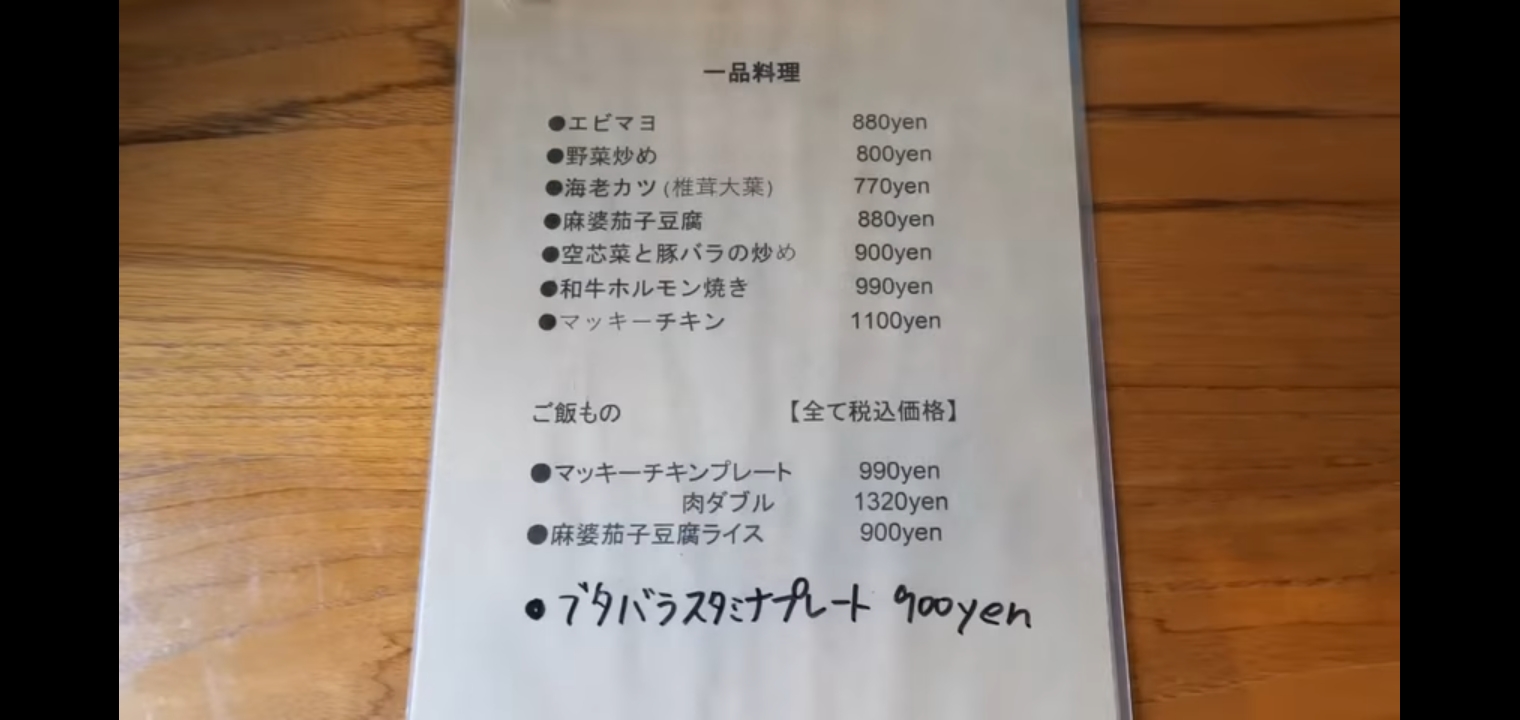 一品料理
●エビマヨ 880yen
●野菜炒め 800yen
●海老カツ(椎茸大葉) 770yen
●麻婆茄子豆腐 880yen
●空芯菜と豚バラの炒め 900yen
●和牛ホルモン焼き 990yen
●マッキーチキン 1100yen
ご飯もの 【全て税込価格】
●マッキーチキンプレート 990yen
肉ダブル 1320yen
●麻婆茄子豆腐ライス 900yen
●ブタバラスタミナプレート 900yen